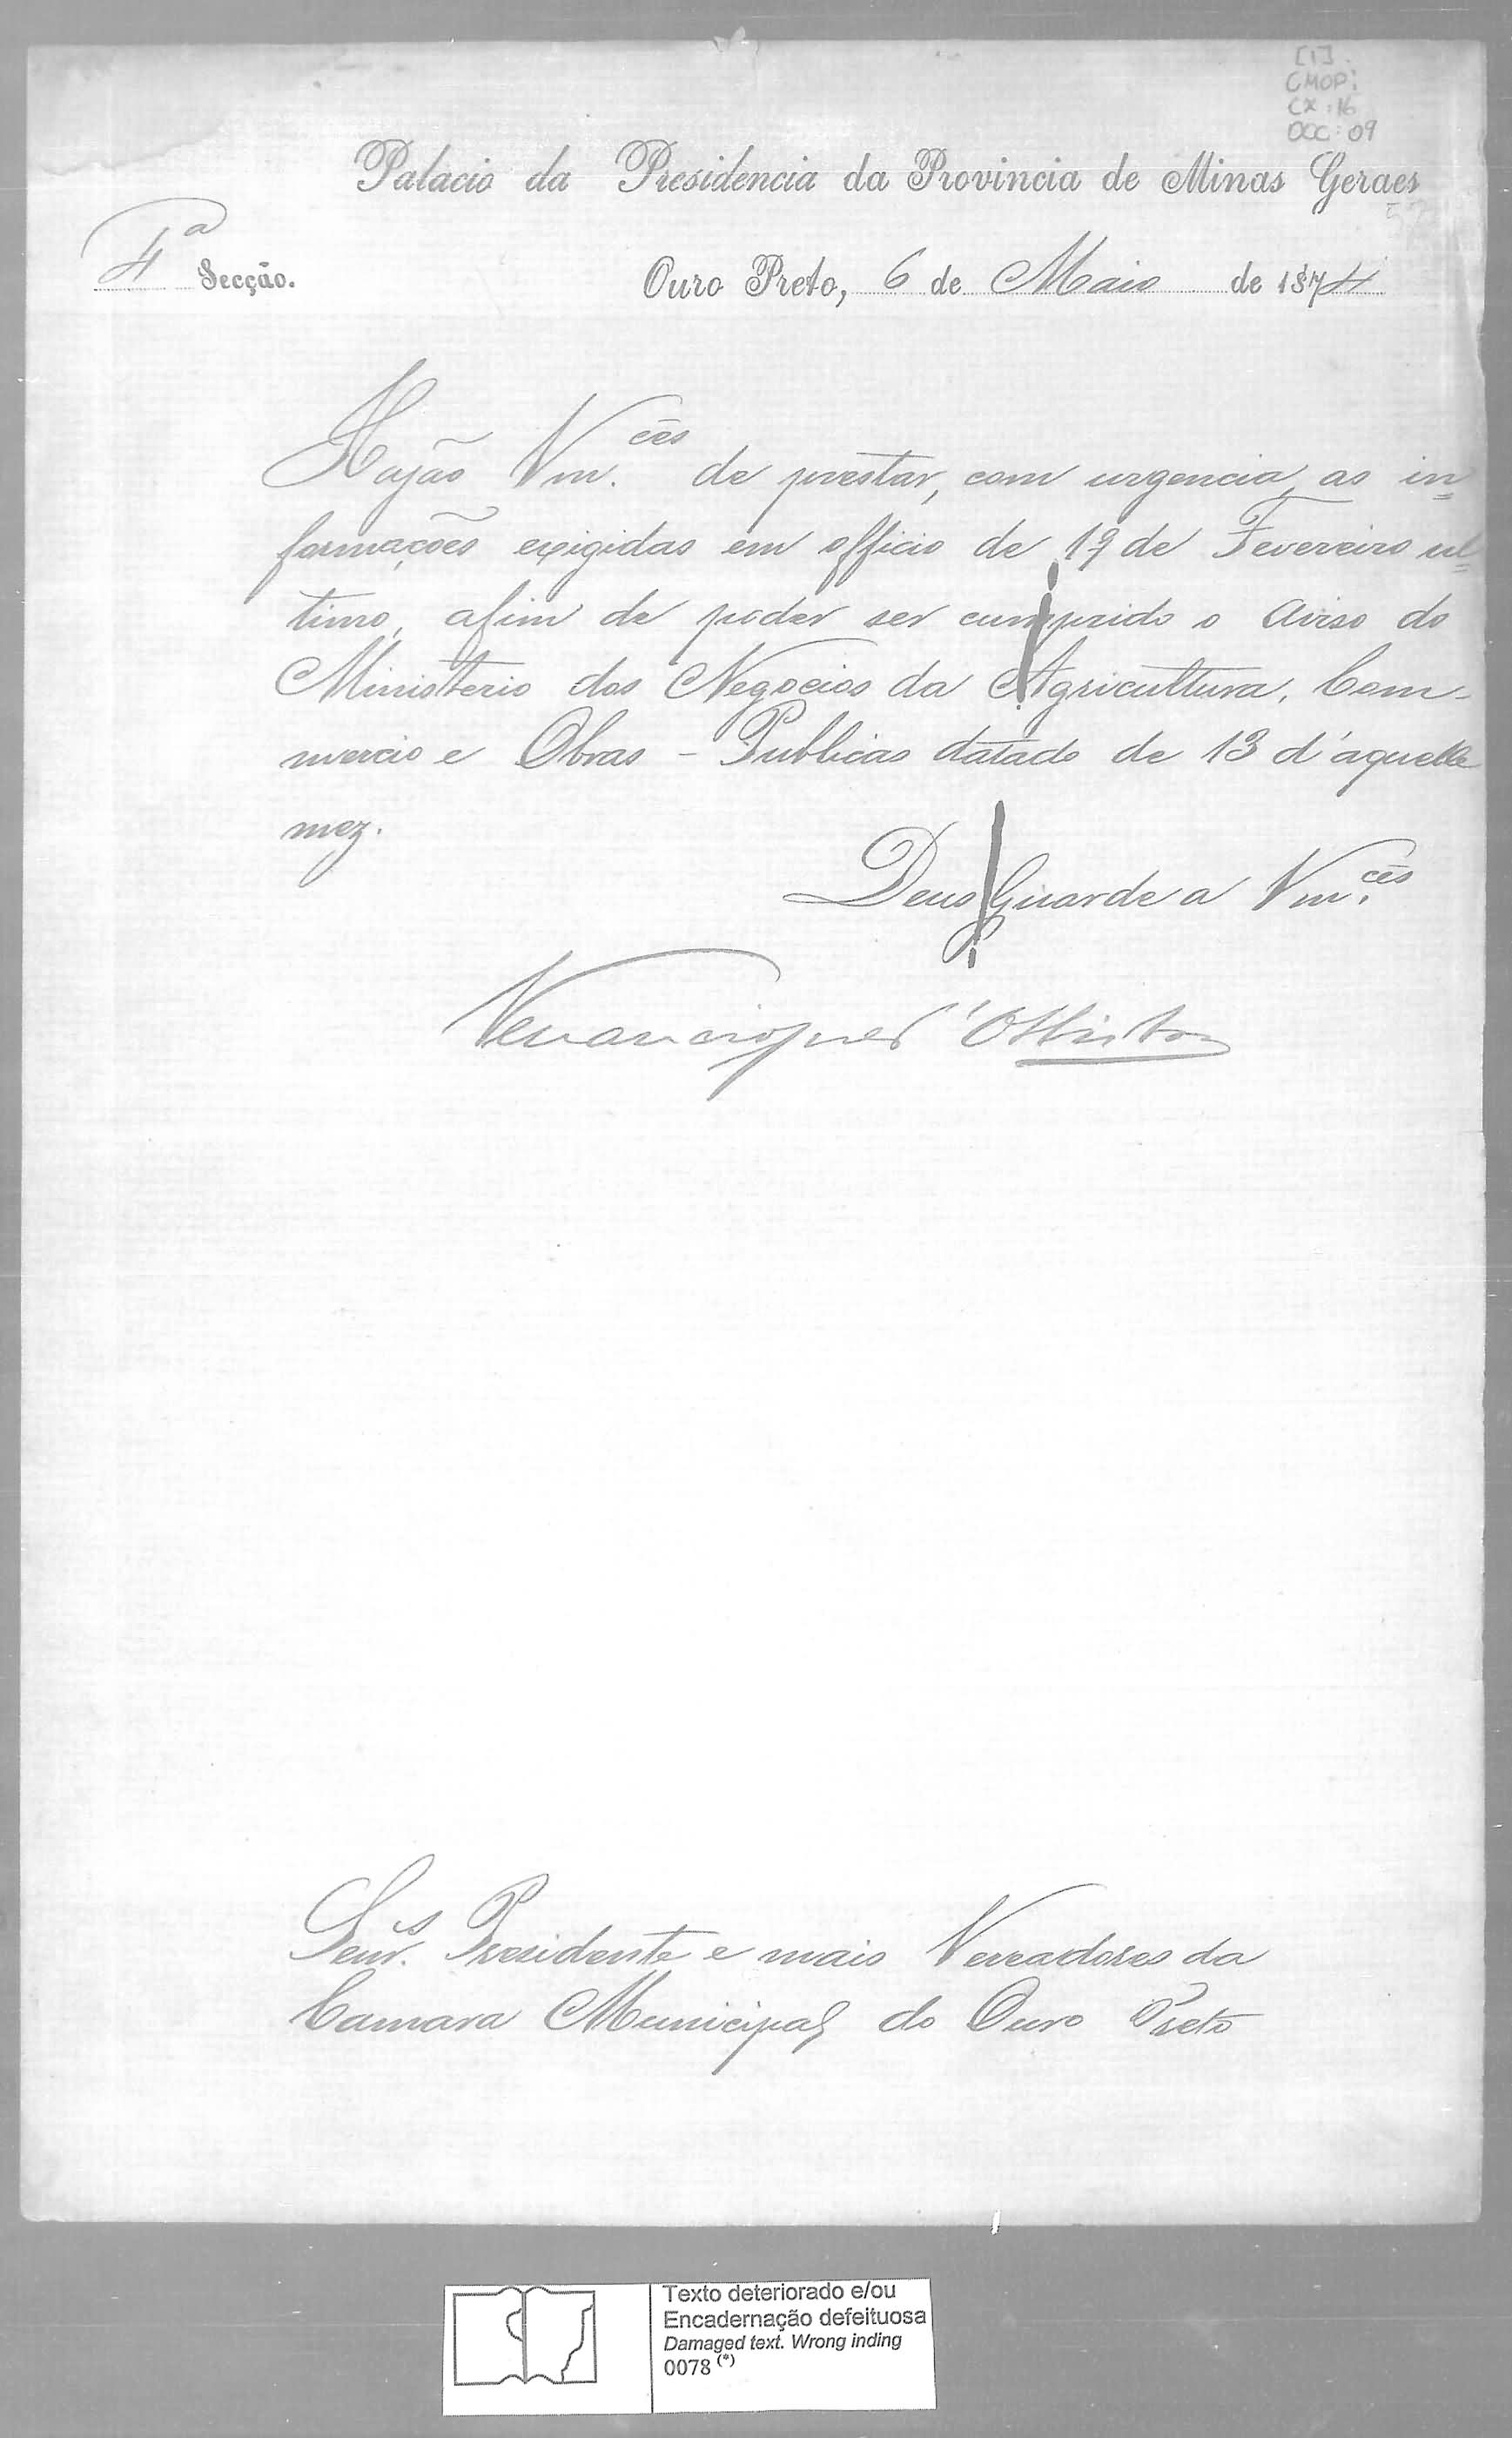 [1]
CMOP:
CX: 16
DOC: 09
Palacio da Presidencia da Provincia de Minas Geraes
4ª Secção.
Ouro Preto, 6 de Maio de 1874
Hajão Vm.ces de prestar, com urgencia, as in=
formações exigidas em officio de 19 de Fevereiro ul=
timo, afim de poder ser cumprido o Aviso do
Ministerio dos Negocios da Agricultura, Com-
mercio e Obras - Publicas datado de 13 d'aquelle
mez.
Deus Guarde a Vm.ces
Senr.s Presidente e mais Vereadores da
Camara Municipal do Ouro Preto
Texto deteriorado e/ou
Encadernação defeituosa
Damaged text. Wrong inding
0078 (*)